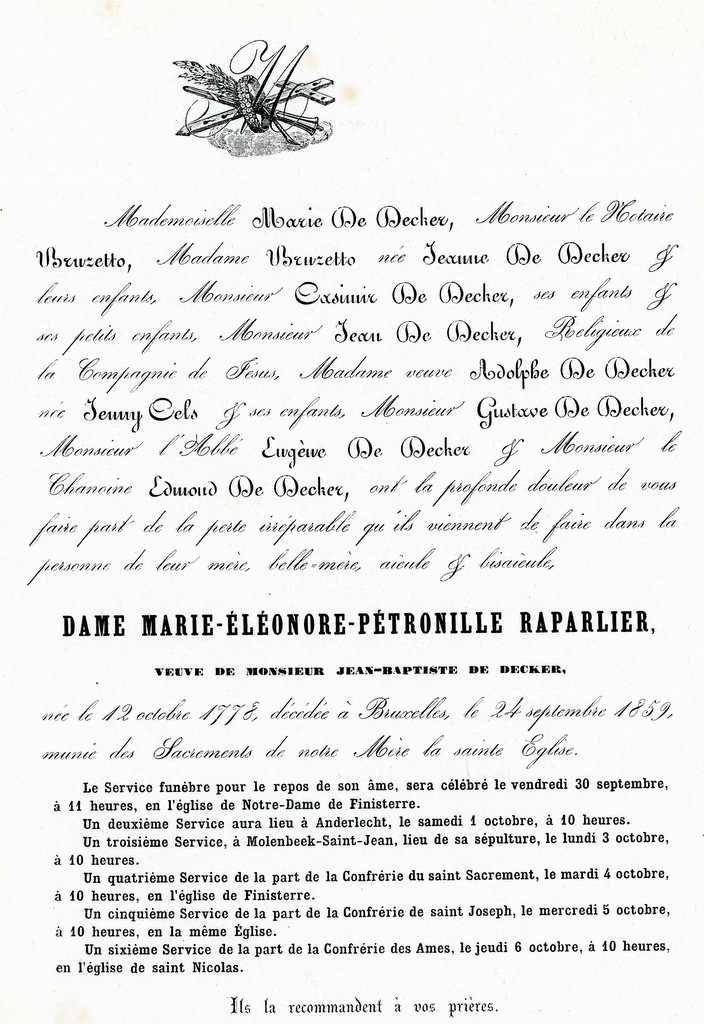 M
Mademoiselle Marie De Decker, Monsieur le Notaire
Bruzetto, Madame Bruzetto née Jeanne De Decker &
leurs enfants, Monsieur Casimir De Decker, ses enfants &
ses petits enfants, Monsieur Jean De Decker, Religieux de
la Compagnie de Jésus, Madame veuve Adolphe De Decker
née Jenny Cels & ses enfants, Monsieur Gustave De Decker,
Monsieur l'Abbé Eugène De Decker & Monsieur le
Chanoine Edmond De Decker, ont la profonde douleur de vous
faire part de la perte irréparable qu'ils viennent de faire dans la
personne de leur mère, belle-mère, aïeule & bisaïeule,
DAME MARIE-ÉLÉONORE-PÉTRONILLE RAPARLIER,
VEUVE DE MONSIEUR JEAN-BAPTISTE DE DECKER,
née le 12 octobre 1778, décédée à Bruxelles, le 24 septembre 1859,
munie des Sacrements de notre Mère la sainte Eglise.
Le Service funèbre pour le repos de son âme, sera célébré le vendredi 30 septembre,
à 11 heures, en l'église de Notre-Dame de Finisterre.
Un deuxième Service aura lieu à Anderlecht, le samedi 1 octobre, à 10 heures.
Un troisième Service, à Molenbeek-Saint-Jean, lieu de sa sépulture, le lundi 3 octobre,
à 10 heures.
Un quatrième Service de la part de la Confrérie du saint Sacrement, le mardi 4 octobre,
à 10 heures, en l'église de Finisterre.
Un cinquième Service de la part de la Confrérie de saint Joseph, le mercredi 5 octobre,
à 10 heures, en la même Église.
Un sixième Service de la part de la Confrérie des Ames, le jeudi 6 octobre, à 10 heures,
en l'église de saint Nicolas.
Ils la recommandent à vos prières.